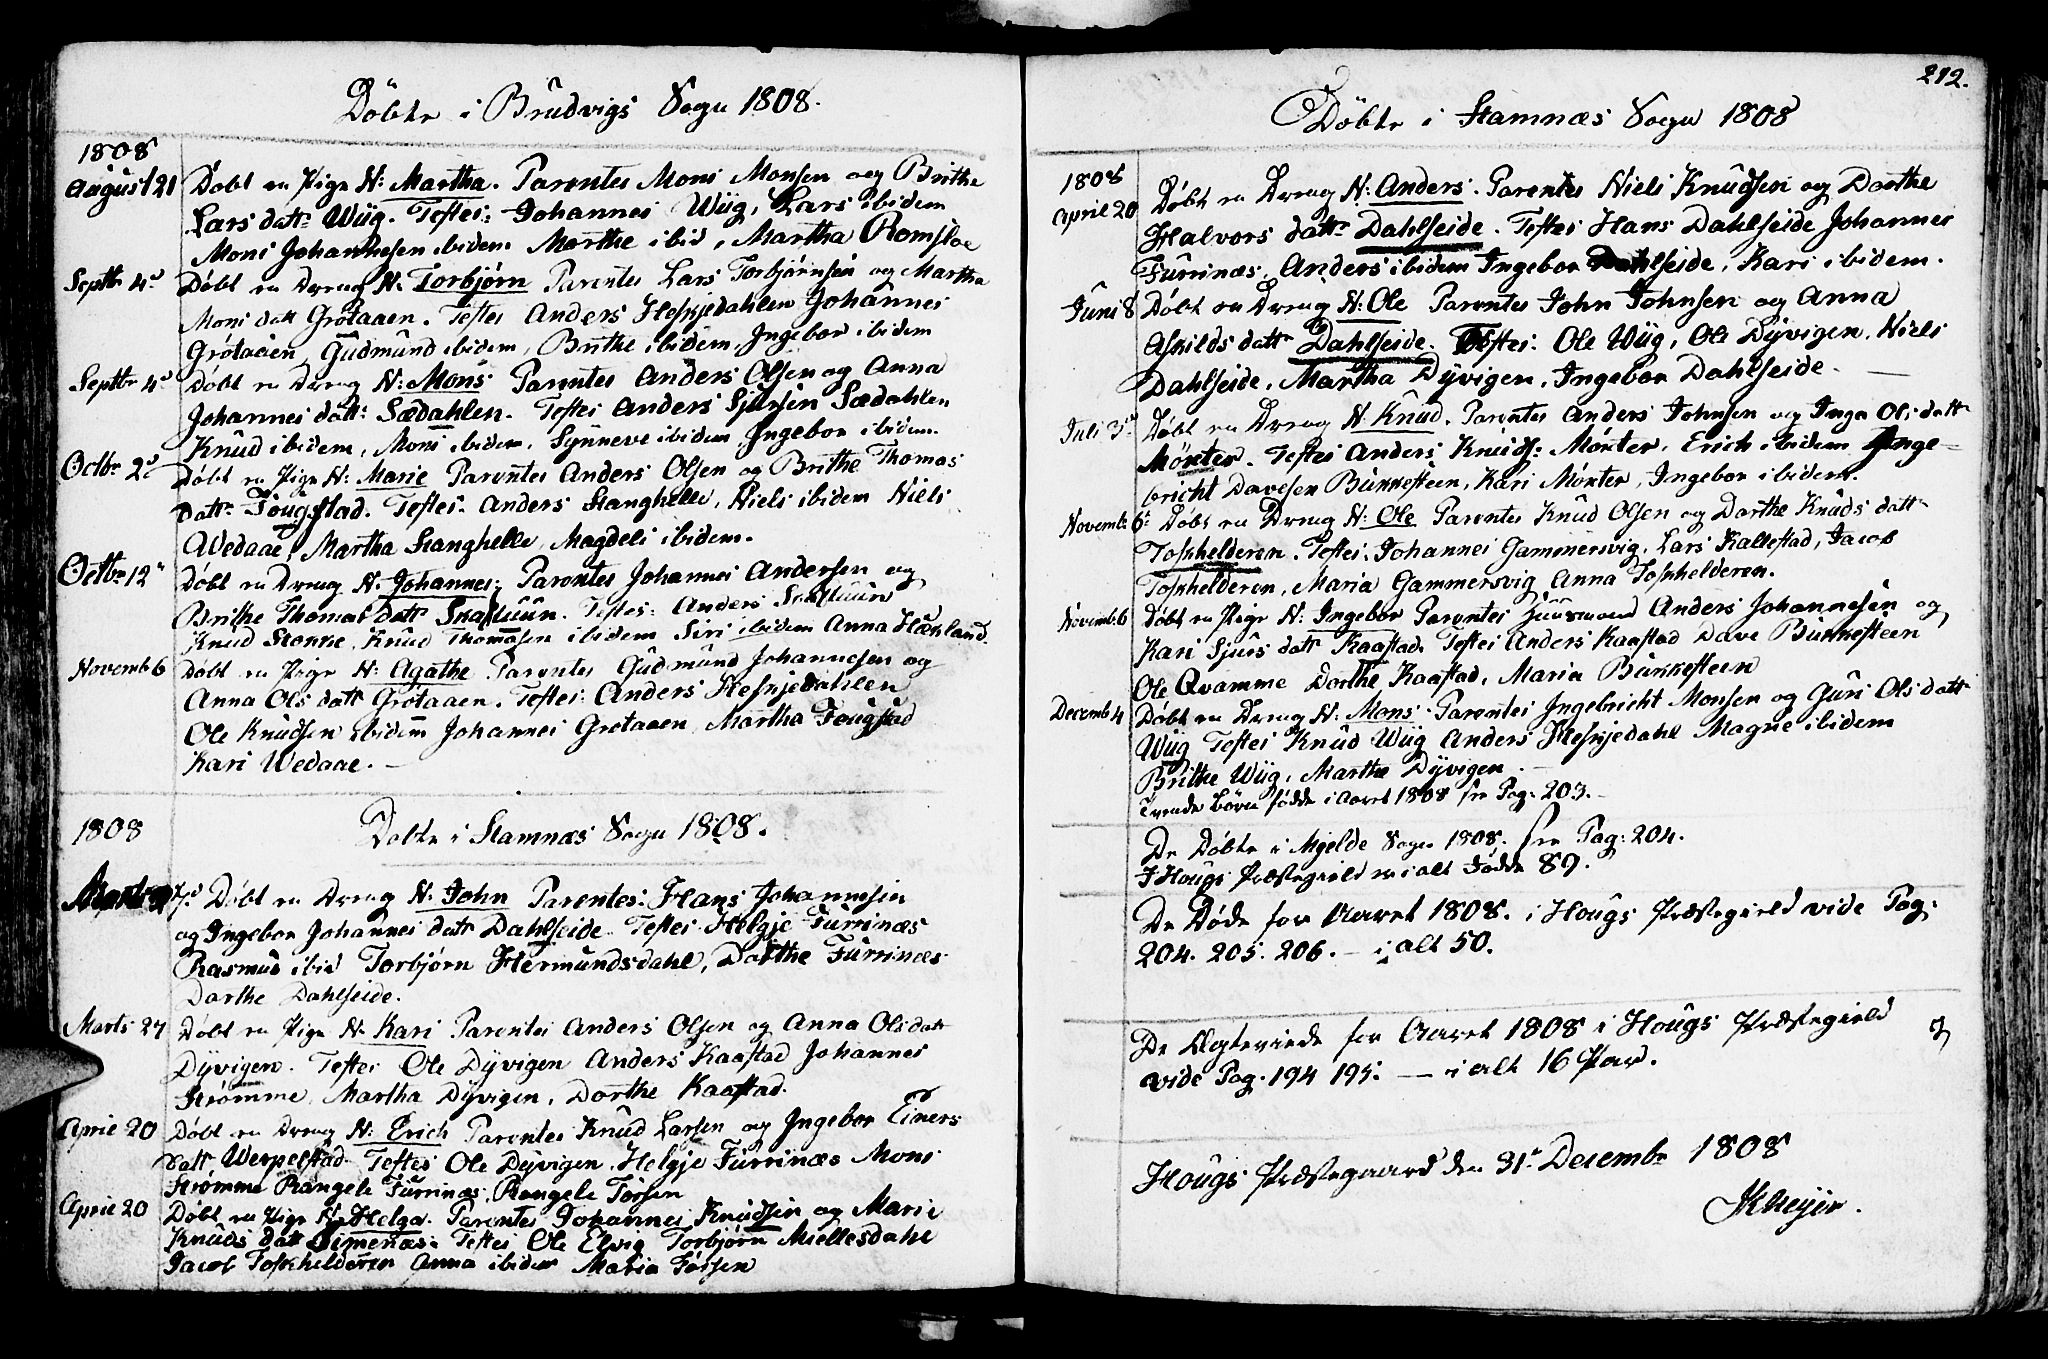 Döbte i Brudvigs Sogn 1808.
1808
August 21 Döbt en Pige N: Martha. Parentes Mons Monsen og Brithe
Lars datt: Wüg. Testes: Johannes Wüg, Lars ibidem
Mons Johannesen ibidem Marthe ibid, Martha Romsloe
Septbr 4d Döbt en Dreng N. Torbjörn Parentes Lars Torbjörnsen og Martha
Mons datt Grotaaen. Testes Anders Heskjedahlen Johannes
Grotaaen, Gudmund ibidem, Brithe ibidem, Ingebor ibidem
Septbr 4d Döbt en Dreng N: Mons Parentes Anders Olsen og Anna
Johannes datt: Sædahlen. Testes Anders Sjursen Sædahlen
Knud ibidem, Mons ibidem, Synneve ibidem Ingebor ibidem.
Octbr 2d Döbt en Pige N: Marie Parentes Anders Olsen og Brithe Thomas
datt: Fougstad. Testes. Anders Stanghelle, Niels ibidem Niels
Wedaae, Martha Stanghelle, Magdeli ibidem.
Octbr 12 Döbt en Dreng N. Johannes; Parentes Johannes Andersen og
Brithe Thomas datt Skaftuün. Testes: Anders Skaftuün
Knud Stokke, Knud Thomasen ibidem Siri ibidem Anna Hækland.
Novemb 6 Döbt en Pige N: Agathe Parentes Gudmund Johannesen og
Anna Ols datt Grotaaen. Testes: Anders Heskjedahlen
Ole Knudsen ibidem Johannes Grotaaen, Martha Fougstad
Kari Wedaae.
1808 Döbte i Stamnæs Sogn 1808.
Döbt en Dreng N. John Parentes: Hans Johannesen
og Ingebor Johannes datt Dahlseide. Testes Helgje Furrinæs
Rasmus ibid Torbjörn Hermundsdahl, Dorthe Furrinæs
Dorthe Dahlseide.
Marts 27 Döbt en Pige N. Kari Parentes Anders Olsen og Anna Ols datt
Dÿvigen. Testes Ole Dÿvigen Anders Kaastad Johannes
Strömme, Martha Dÿvigen, Dorthe Kaastad.
Aprie 20 Döbt en Dreng N: Erich Parentes Knud Larsen og Ingebor Einers
datt Werpelstad Testes Ole Dÿvigen. Helgje Furrinæs Mons
Strömme Rangele Furrinæs, Rangele Törsen
Aprie 20 Döbt en Pige N. Helga. Parentes Johannes Knudsen og Marie
Knuds datt Simenæs. Testes Ole Elvig Torbjörn Miellesdahl
Jacob Toskhelderen Anna ibidem Maria Törsen
212.
Döbte i Stamnæs Sogn 1808
1808
April 20 Döbt en Dreng N: Anders. Parentes Niels Knudsen og Dorthe
Halvors datt: Dahlseide. Testes Hans Dahlseide Johannes
Furrinæs, Anders ibidem Ingebor Dahlseide, Kari ibidem.
Juni 8 Döbt en Dreng N: Ole Parentes John Johnsen og Anna
Askilds datt: Dahlseide. Testes: Ole Wüg, Ole Dÿvigen, Niels
Dahlseide, Martha Dÿvigen, Ingebor Dahlseide.
Juli 3d Döbt en Dreng N. Knud. Parentes Anders Johnsen og Inga Ols datt:
Mönter. Testes Anders Knuds: Mönter, Erich ibidem Inge-
bricht Davesen Bunkesteen, Kari Mönter, Ingebor ibidem.
Novemb. 6 Döbt en Dreng N: Ole Parentes Knud Olsen og Dorthe Knuds datt:
Toskhelderen. Testes: Johannes Gammersvig, Lars Kallestad, Jacob
Toskhelderen, Maria Gammersvig Anna Toskhelderen.
Novemb. 6 Döbt en Pige N. Ingebor Parentes Huusmand Anders Johannesen og
Kari Sjurs datt Kaastad. Testes Anders Kaastad Dave Bunkesteen
Ole Qvamme Dorthe Kaastad, Maria Bunkesteen
Decemb 4 Döbt en Dreng N: Mons Parentes Ingebricht Monsen og Guri Ols datt
Wüg Testes Knud Wüg Anders Heskjedahl Magne ibidem
Brithe Wüg, Marthe Dÿvigen
Tvende Börn födde i Aaret 1808 see Pag: 203.
De Döbte i Mjelde Sogn 1808. see Pag: 204.
I Hougs Præstegield er i alt Födde 89.
De Döde for Aaret 1808. i Hougs Præstegield vide Pag:
204. 205. 206. - i alt 50.
De Egteviede for Aaret 1808 i Hougs Præstegield
vide Pag. 194 195: — i alt 16 Par.
Hougs Præstegaard den 31t Decembr 1808